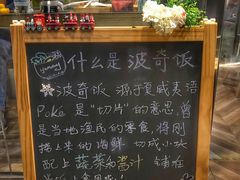 yummy!
什么是波奇饭
波奇饭 源于夏威夷语
Poke 是"切片"的意思,曾
是当地渔民的零食,将刚
捞上来的海鲜 切成小块
配上蔬菜和酱汁 铺在